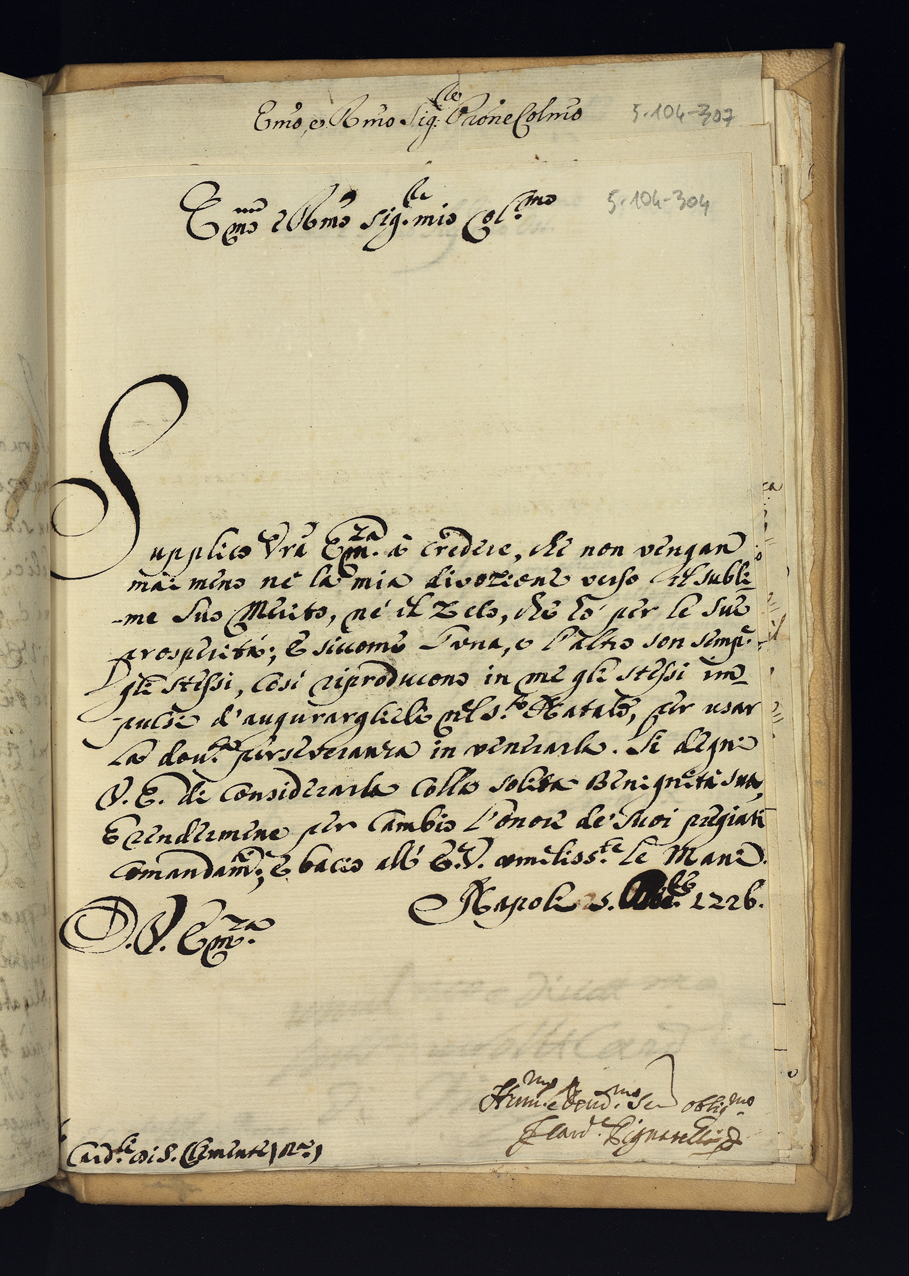 Emo, e Rmo Sig:re Prone Colmo 5.104-307
Emo e Rmo Sig.re mio Col.mo 5.104-304
Supplico Vrã Em.za à credere, che non vengan
mai meno nè la mia divozione verso il subli-
-me suo Merito, nè il zelo, che hò per le sue
prosperità; E siccome l'una, e l'altro son sempr.
gli stessi, così riproducono in me gli stessi im-
pulsi d'augurarglieli nel s.to Natale, per usar
la dou.ta perseveranza in venerarla. Si degni
V. E. di considerarla colla solita Benignità sua,
E rendermene per cambio l'onore de' suoi pregiati
comandam.ti; E bacio all' E. V. umiliss.te le Mani.
Napoli 5. Xbre 1726.
D. V. Em.za
Hum.mo e deud.mo Ser oblig.mo
F Card.e Pignatelli
Card.le di S. Clemente